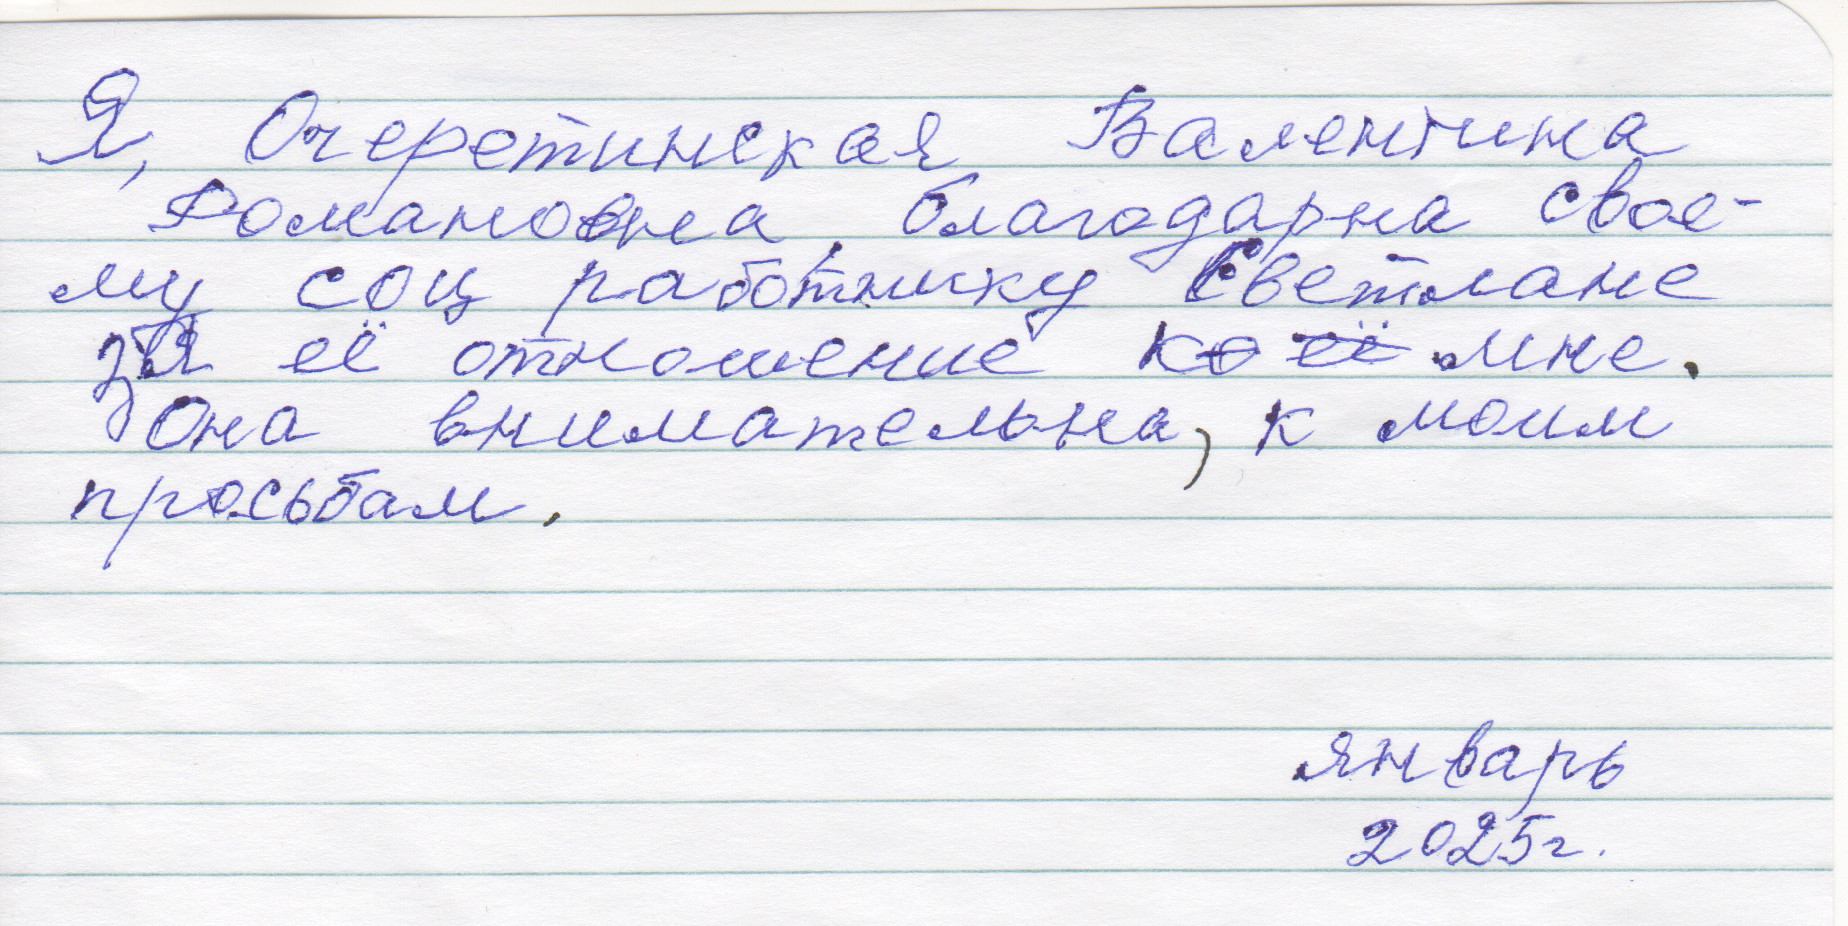 Я, Очеретинская Валентина
Романовна, благодарна свое-
му соц работнику Светлане
за её отношение ко её мне.
Она внимательна, к моим
просьбам.
январь
2025г.